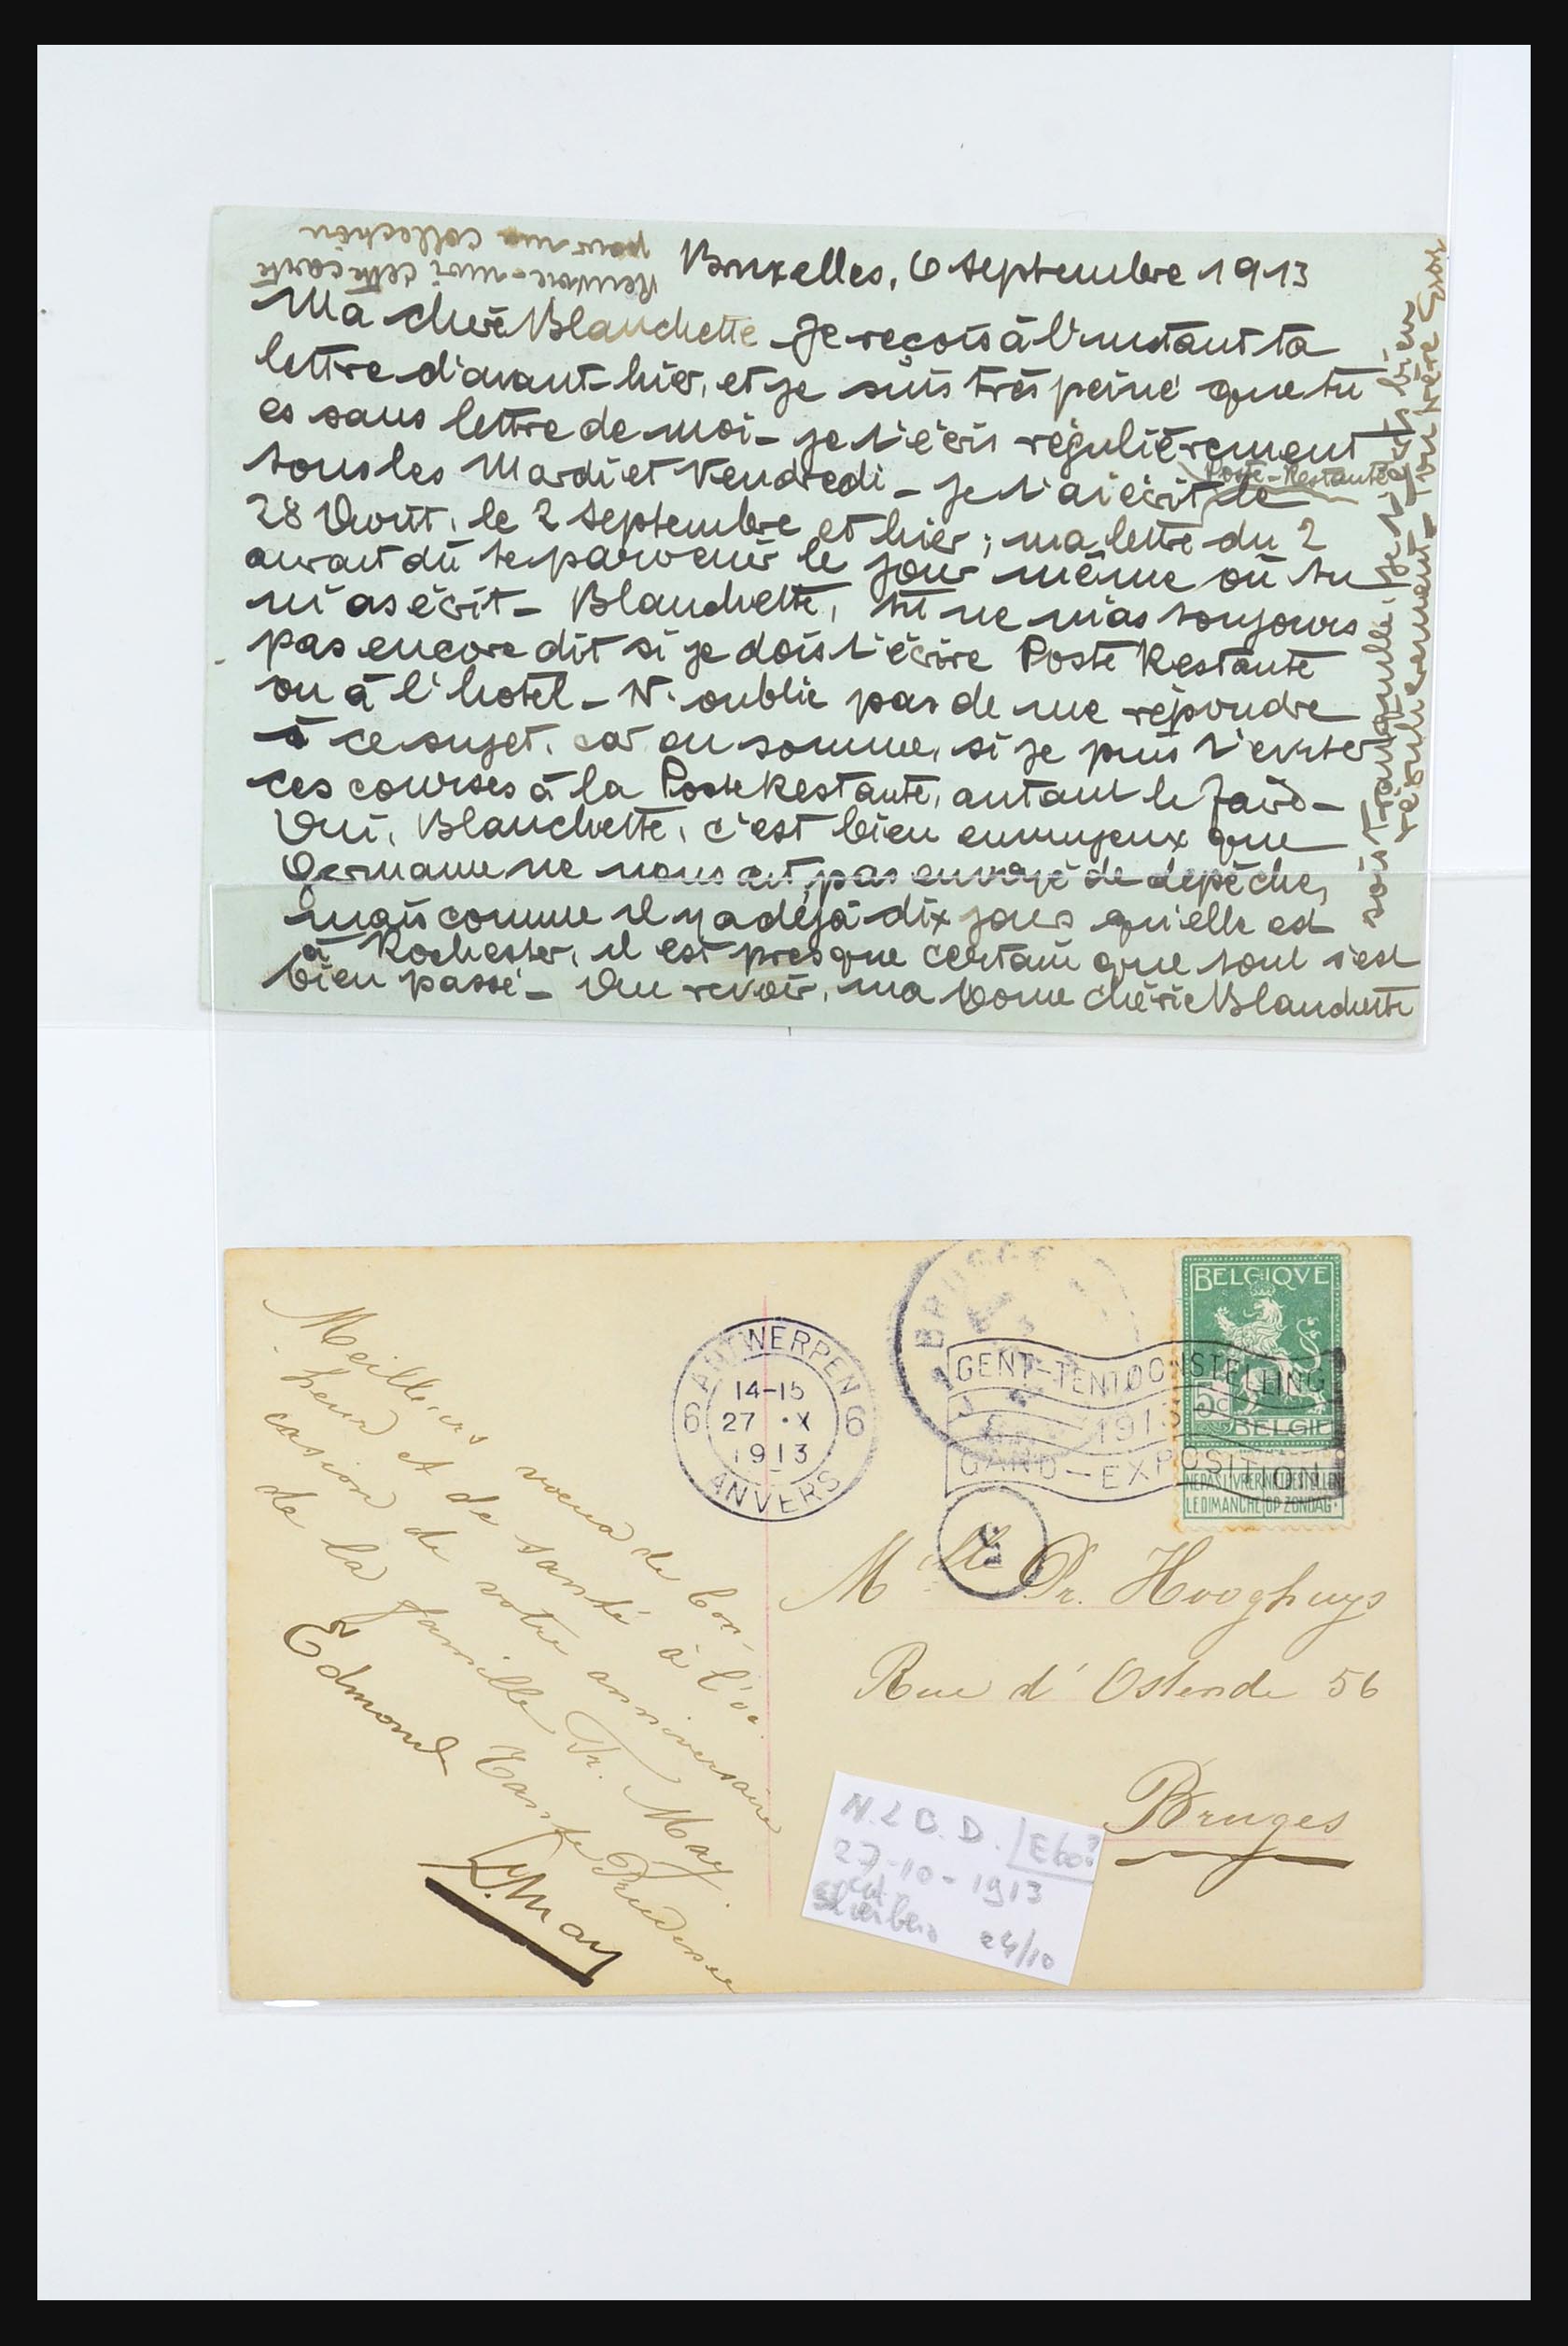 Renvoie-moi cette carte
pour ma collection
Bruxelles, 6 Septembre 1913
Ma chère Blanchette - Je reçois à l'instant ta
lettre d'avant-hier, et je suis très peiné que tu
es sans lettre de moi - je t'écris régulièrement
tous les Mardi et Vendredi - je t'ai écrit le
Poste-Restante
28 Août, le 2 Septembre et hier; ma lettre du 2
aurait dû te parvenir le jour même où tu
m'as écrit - Blanchette, tu ne m'as toujours
pas encore dit si je dois t'écrire Poste Restante
ou à l'hotel - N'oublie pas de me répondre
à ce sujet, car en somme, si je puis t'eviter
ces courses à la Poste Restante, autant le faire -
Oui, Blanchette, c'est bien ennuyeux que
Germaine ne nous ait pas envoyé de depêche,
mais comme il y a déjà dix jours qu'elle est
à Rochester, il est presque certain que tout s'est
bien passé - Au revoir, ma bonne chérie Blanchette
sois tranquille, je t'écris bien
régulièrement - Ton frère
Meilleurs voeux de bon-
heur et de santé à l'oc-
casion de votre anniversaire
de la famille Fr. May.
Edmond Tante Prudence
L. May
ANTWERPEN
14-15
6 27 · X 6
1913
ANVERS
BRUGGE
GENT-TENTOONSTELLING
1913
GAND-EXPOSITION
BELGIQVE
5c
BELGIË
NE PAS LIVRER NIET BESTELLEN
LE DIMANCHE OP ZONDAG
Mlle Pr. Hooghuys
Rue d'Ostende 56
Bruges
27-10-1913
24/10